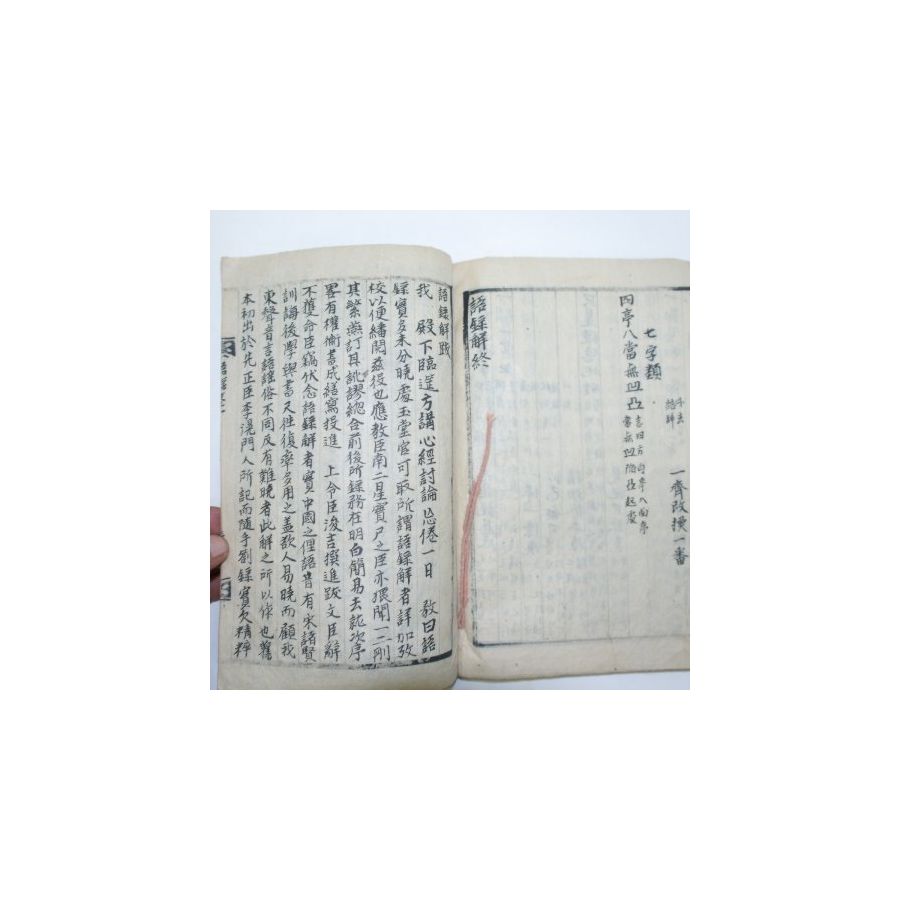 一齊改換一番
七字類
四亭八當無凹凸
語録解終
語録解跋
我 殿下臨筵方講心經討論忘倦一日 教曰語
録實多未分曉處玉堂官可取所謂語録解者詳加攷
校以便繙閱玆役也應教臣南二星實尸之臣亦猥聞一二刪
其繁蕪訂其訛謬總合前後所録務在明白簡易去就次序
畧有權衡書成繕寫投進 上令臣浚吉撰進跋文臣辭
不獲命臣竊伏念語録解者實中國之俚語昔有宋諸賢
訓誨後學與書尺徃復率多用之盖欲人易曉而顧我
東聲音言語謠俗不同反有難曉者此解之所以作也舊
本初出於先正臣李滉門人所記而隨手劄録實欠精粹